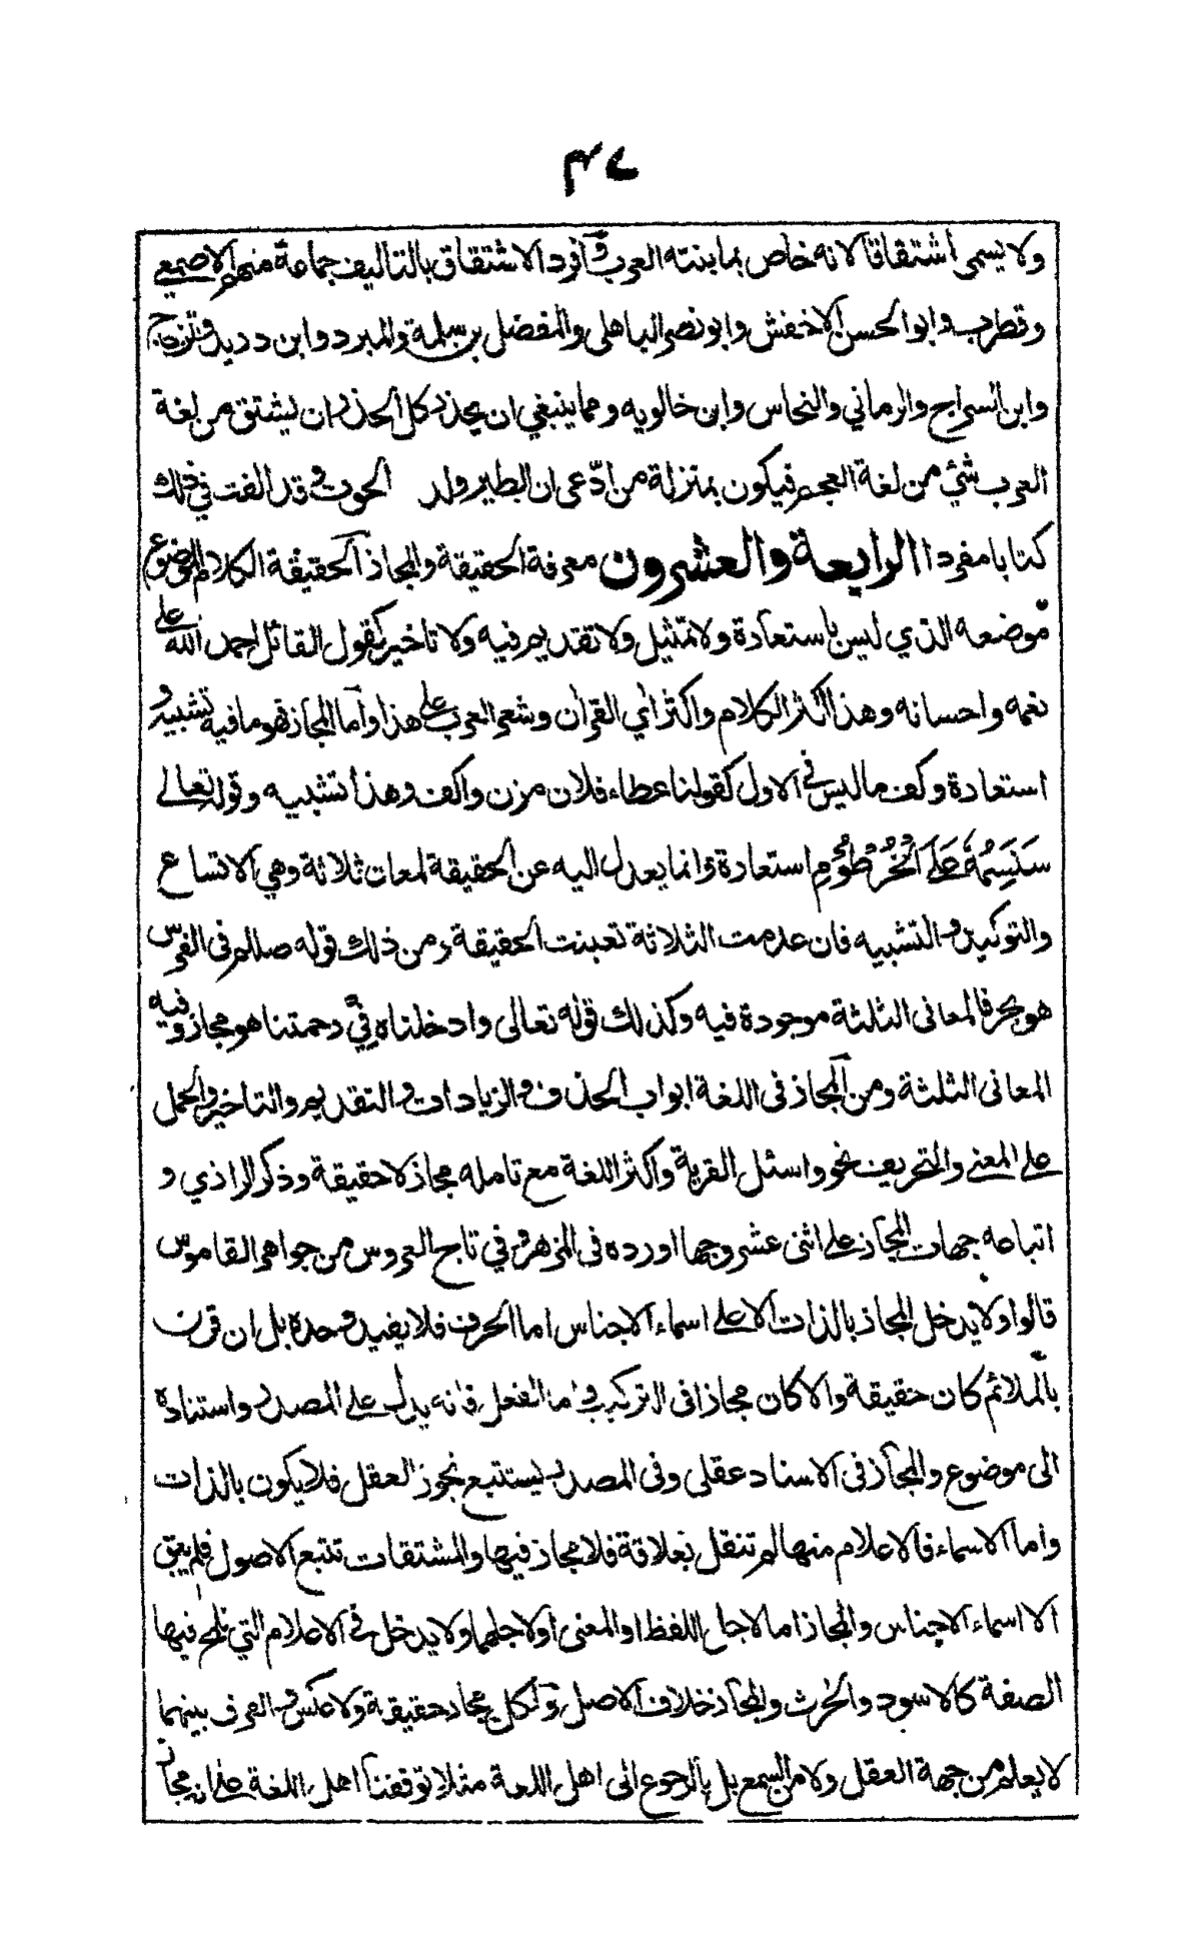 ٤٧
ولا يسمى اشتقاقا لانه خاص بما بنته العرب وافرد الاشتقاق بالتاليف جماعة منهم الاصمعي
وقطرب وابو الحسن الاخفش وابو نصر الباهلي والمفضل بن سلمة والمبرد وابن دريد والزجاج
وابن السراج والرماني والنحاس وابن خالويه ومما ينبغي ان يحذر كل الحذر ان يشتق من لغة
العرب شئ من لغة العجم فيكون بمنزلة من ادّعى ان الطير ولد الحوت وقد الفت في ذلك
كتابا مفردا الرابعة والعشرون معرفة الحقيقة والمجاز الحقيقة الكلام الموضوع
موضعه الذي ليس باستعارة ولا تمثيل ولا تقديم فيه ولا تاخير كقول القائل احمد الله على
نعمه واحسانه وهذا اكثر الكلام واكثر اٰي القراٰن وشعر العرب على هذا واما المجاز فهو ما فيه تشبيه و
استعارة وكف ما ليس في الاول كقولنا عطاء فلان مزن واكف وهذا تشبيه وقوله تعالى
سَنَسِمُهٗ عَلَى الْخُرْطُوْمِ استعارة وانما يعدل اليه عن الحقيقة لمعان ثلاثة وهي الاتساع
والتوكيد والتشبيه فان عدمت الثلاثة تعينت الحقيقة ومن ذلك قوله صللم في الفرس
هو بحر فالمعانى الثلثة موجودة فيه وكذلك قوله تعالى وادخلناه في رحمتنا هو مجاز وفيه
المعانى الثلثة ومن المجاز فى اللغة ابواب الحذف والزيادات والتقديم والتاخير والحمل
على المعنى والتحريف نحو واسئل القرية واكثر اللغة مع تامله مجاز لا حقيقة وذكر الرازي و
اتباعه جهات المجاز على اثنى عشر وجها اورده فى المزهر وفي تاج العروس من جواهر القاموس
قالوا ولا يدخل المجاز بالذات الا على اسماء الاجناس اما الحرف فلا يفيد وحده بل ان قرن
بالملائم كان حقيقة والا كان مجازا فى التركيب واما الفعل فانه يدل على المصدر واستناده
الى موضوع والمجاز فى الاسناد عقلى وفى المصدر يستتبع تجوز العقل فلا يكون بالذات
واما الاسماء فالاعلام منها لم تنقل بعلاقة فلا مجاز فيها والمشتقات تتبع الاصول فلم يبق
الا اسماء الاجناس والمجاز اما لاجل اللفظ او المعنى او لاجلهما ولا يدخل في الاعلام التي تلمح فيها
الصفة كالاسود والحرث والمجاز خلاف الاصل ولكل مجاز حقيقة ولا عكس والعرف بينهما
لا يعلم من جهة العقل ولا من السمع بل بالرجوع الى اهل اللغة مثلا توقفنا اهل اللغة على ان مجاز